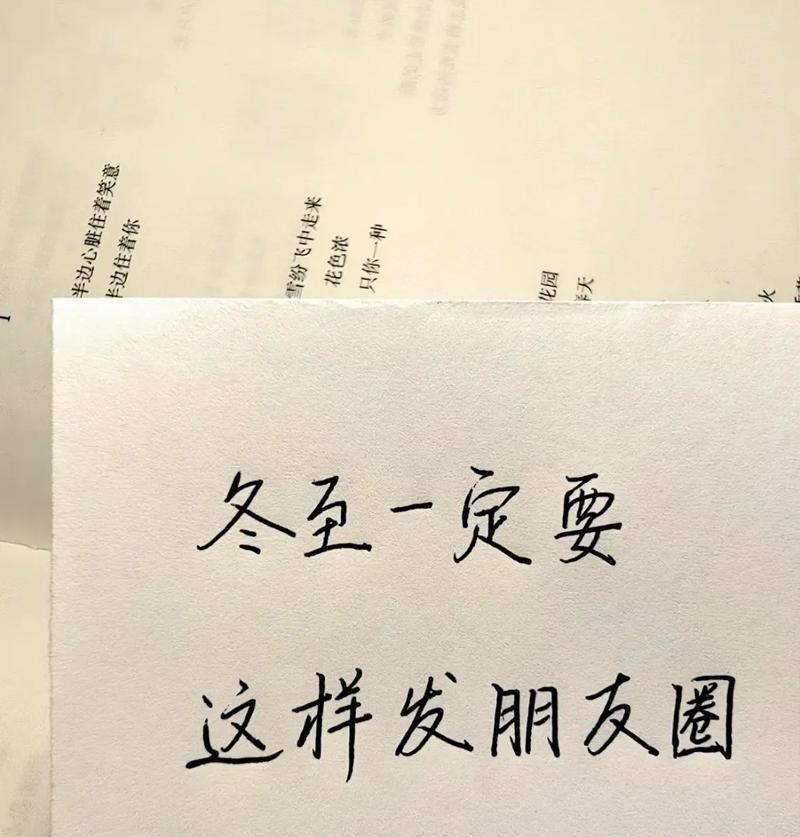 半边心脏住着笑意
半边住着你
雪纷飞中走来
花色浓
只你一种
花园
春天
火
冬至一定要
这样发朋友圈